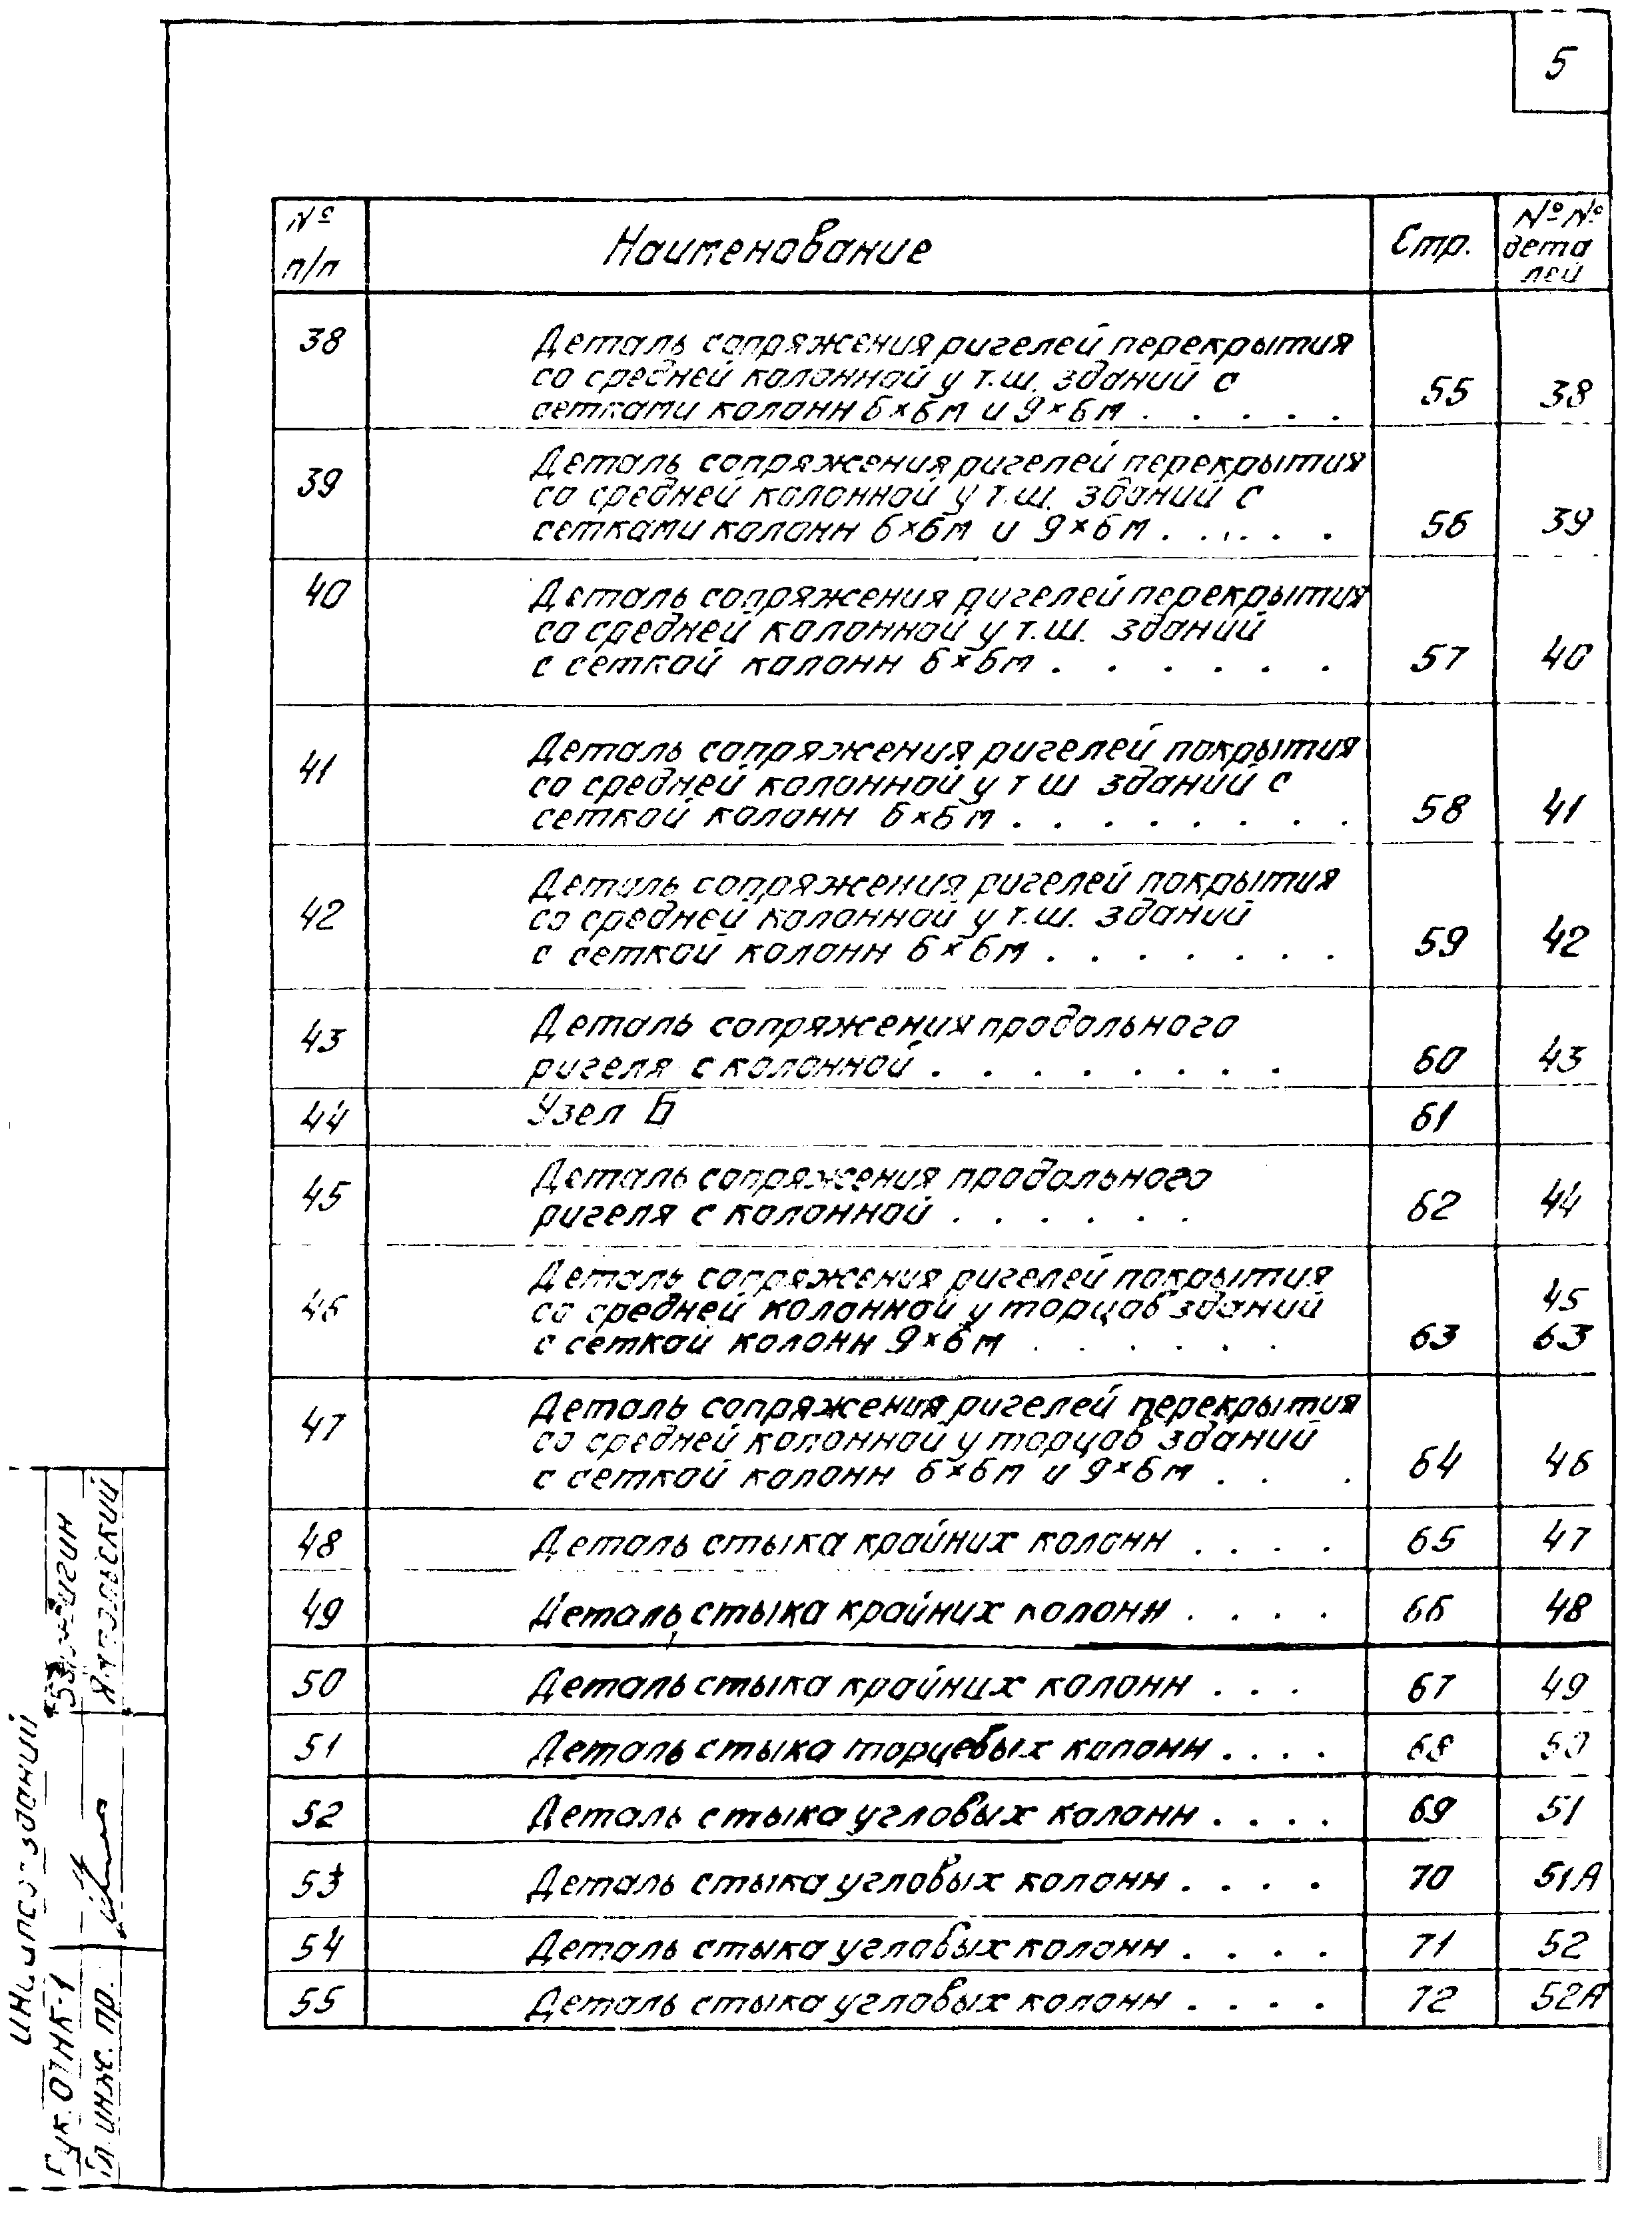 5
№ п/п Наименование Стр. №№ дета лей
38 Деталь сопряжения ригелей перекрытия
со средней колонной у т.ш. зданий с
сетками колонн 6×6м и 9×6м . . . . . 55 38
39 Деталь сопряжения ригелей перекрытия
со средней колонной у т.ш. зданий с
сетками колонн 6×6м и 9×6м . . . . . 56 39
40 Деталь сопряжения ригелей перекрытия
со средней колонной у т.ш. зданий
с сеткой колонн 6×6м . . . . . . 57 40
41 Деталь сопряжения ригелей покрытия
со средней колонной у т ш зданий с
сеткой колонн 6×6м . . . . . . . . 58 41
42 Деталь сопряжения ригелей покрытия
со средней колонной у т.ш. зданий
с сеткой колонн 6×6м . . . . . . . 59 42
43 Деталь сопряжения продольного
ригеля с колонной . . . . . . . . 60 43
44 Узел Б 61
45 Деталь сопряжения продольного
ригеля с колонной . . . . . . 62 44
46 Деталь сопряжения ригелей покрытия
со средней колонной у торцов зданий 45
с сеткой колонн 9×6м . . . . . . 63 63
47 Деталь сопряжения ригелей перекрытия
со средней колонной у торцов зданий
с сеткой колонн 6×6м и 9×6м . . . 64 46
48 Деталь стыка крайних колонн . . . . 65 47
49 Деталь стыка крайних колонн . . . . 66 48
50 Деталь стыка крайних колонн . . . 67 49
51 Деталь стыка торцевых колонн . . . . 68 50
52 Деталь стыка угловых колонн . . . . 69 51
53 Деталь стыка угловых колонн . . . . 70 51А
54 Деталь стыка угловых колонн . . . . 71 52
55 Деталь стыка угловых колонн . . . . 72 52А
зданий
Рук. ОТНК-1
Гл. инж. пр.